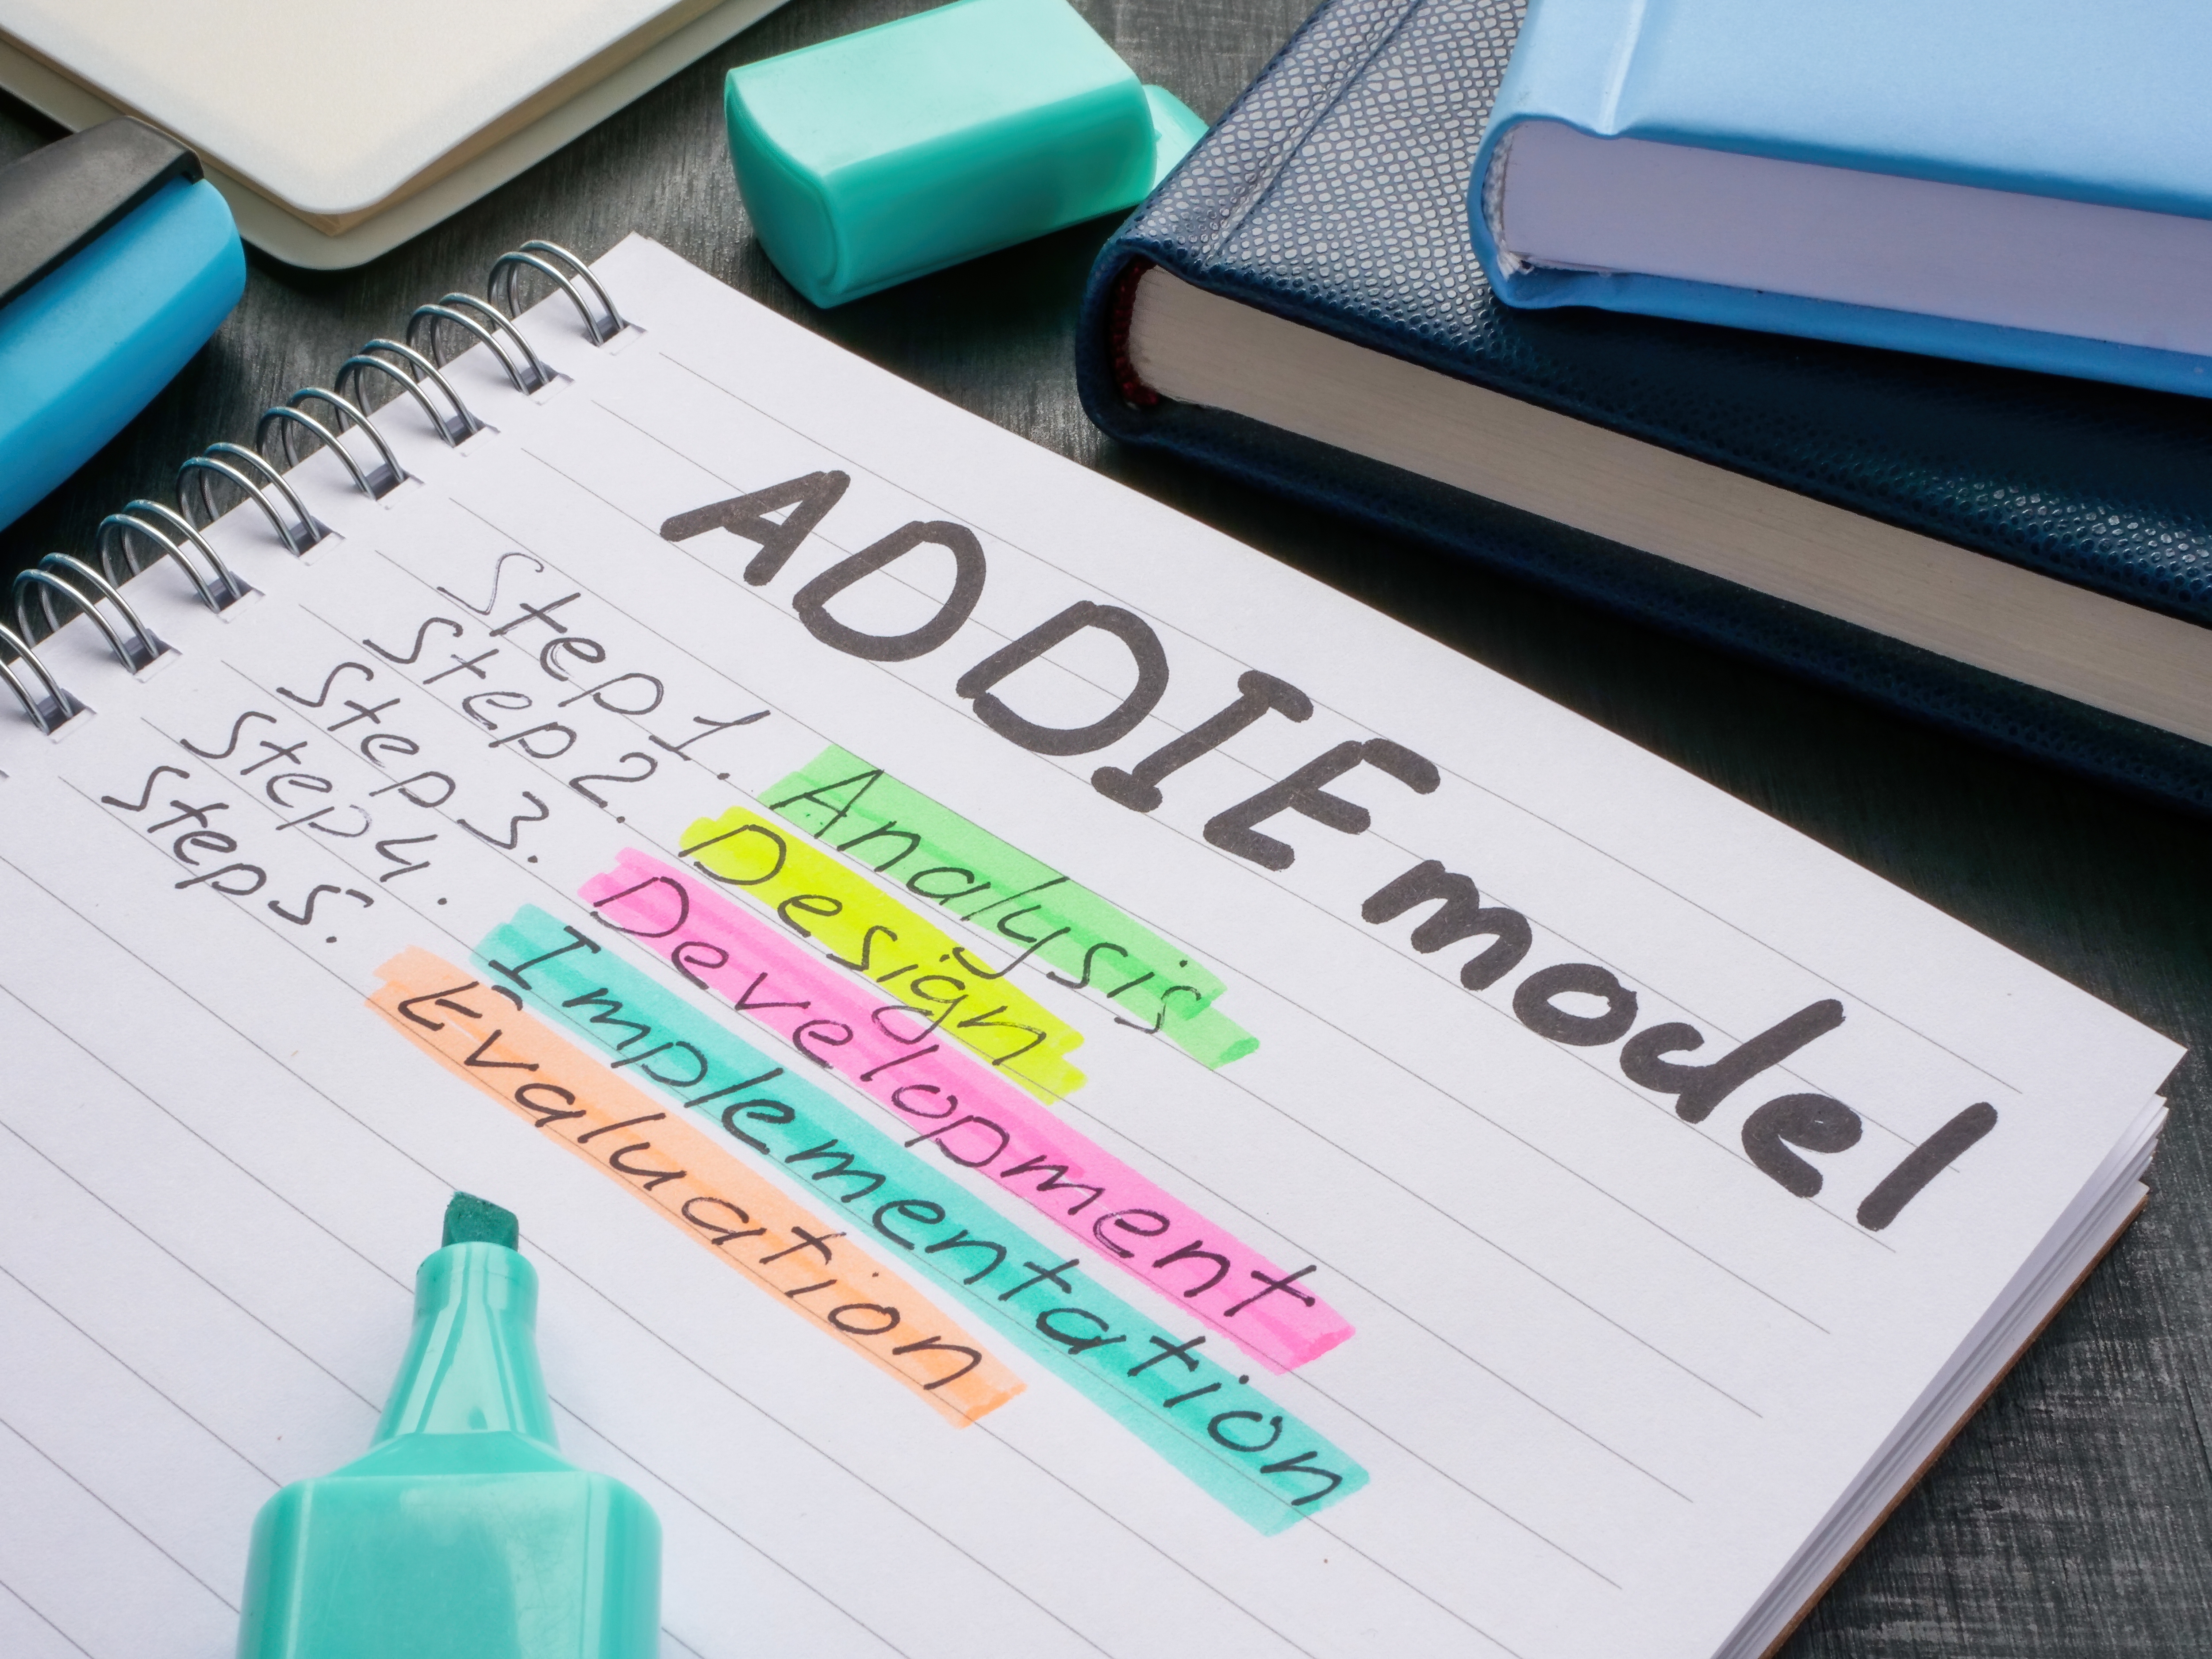 ADDIE model
Step 1. Analysis
Step 2. Design
Step 3. Development
Step 4. Implementation
Step 5. Evaluation